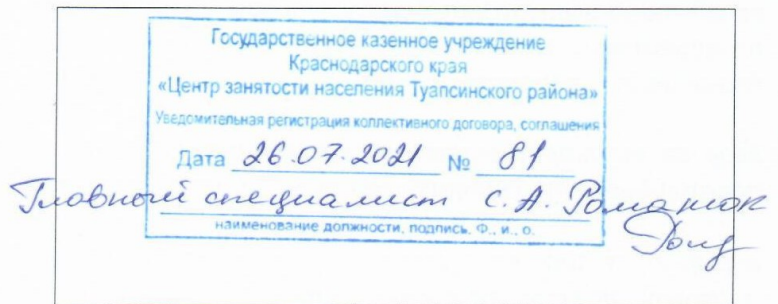 Государственное казенное учреждение
Краснодарского края
«Центр занятости населения Туапсинского района»
Уведомительная регистрация коллективного договора, соглашения
Дата 26.07.2021 № 81
Главный специалист С.А. Романюк
наименование должности, подпись. Ф., и., о.